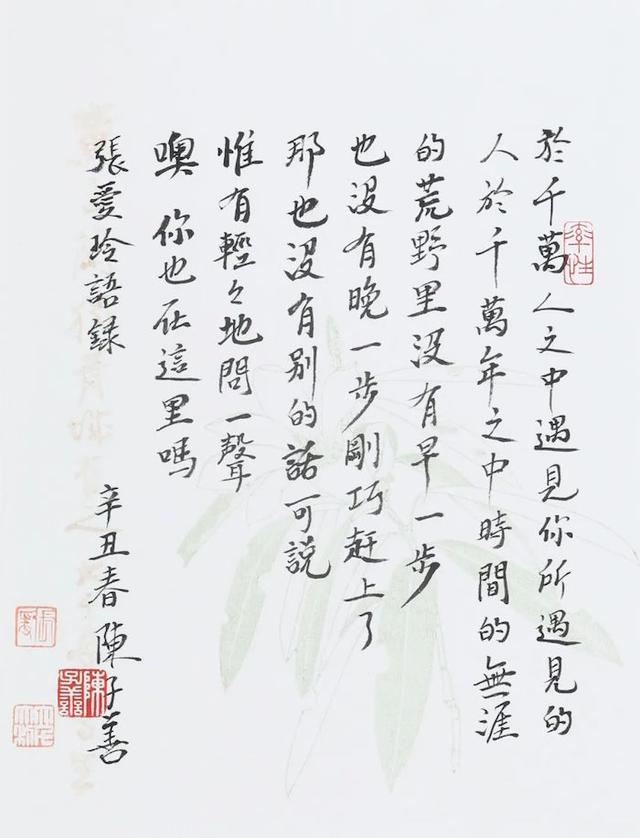 於千萬人之中遇見你所遇見的
人於千萬年之中時間的無涯
的荒野里没有早一步
也没有晚一步剛巧赶上了
那也没有别的話可説
惟有輕々地問一聲
噢 你也在這里嗎
張愛玲語録 辛丑春 陳子善
率性